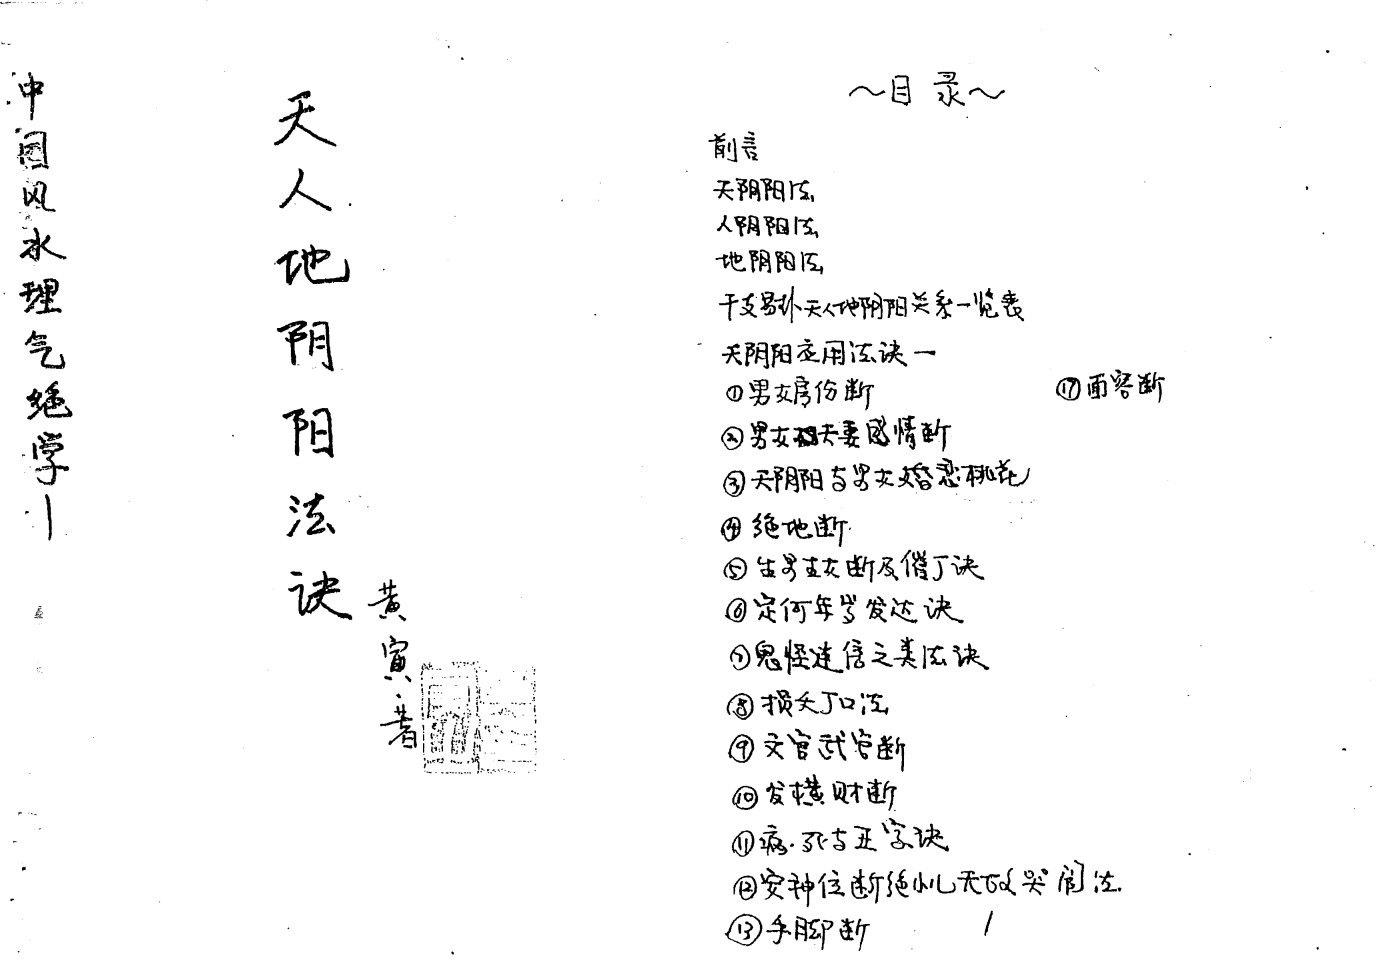 中国风水理气绝学一
天人地阴阳法诀
黄寅著
~目录~
前言
天阴阳法
人阴阳法
地阴阳法
干支易卦天人地阴阳关系一览表
天阴阳应用法诀一
①男女房份断
⑰面容断
②男女夫妻感情断
③天阴阳与男女婚恋桃花
④绝地断
⑤生男生女断及催丁诀
⑥定何年岁发达诀
⑦鬼怪迷信之类法诀
⑧损夭丁口法
⑨文官武官断
⑩发横财断
⑪病.死与五字诀
⑫安神位断绝小儿无故哭闹法.
⑬手脚断
1